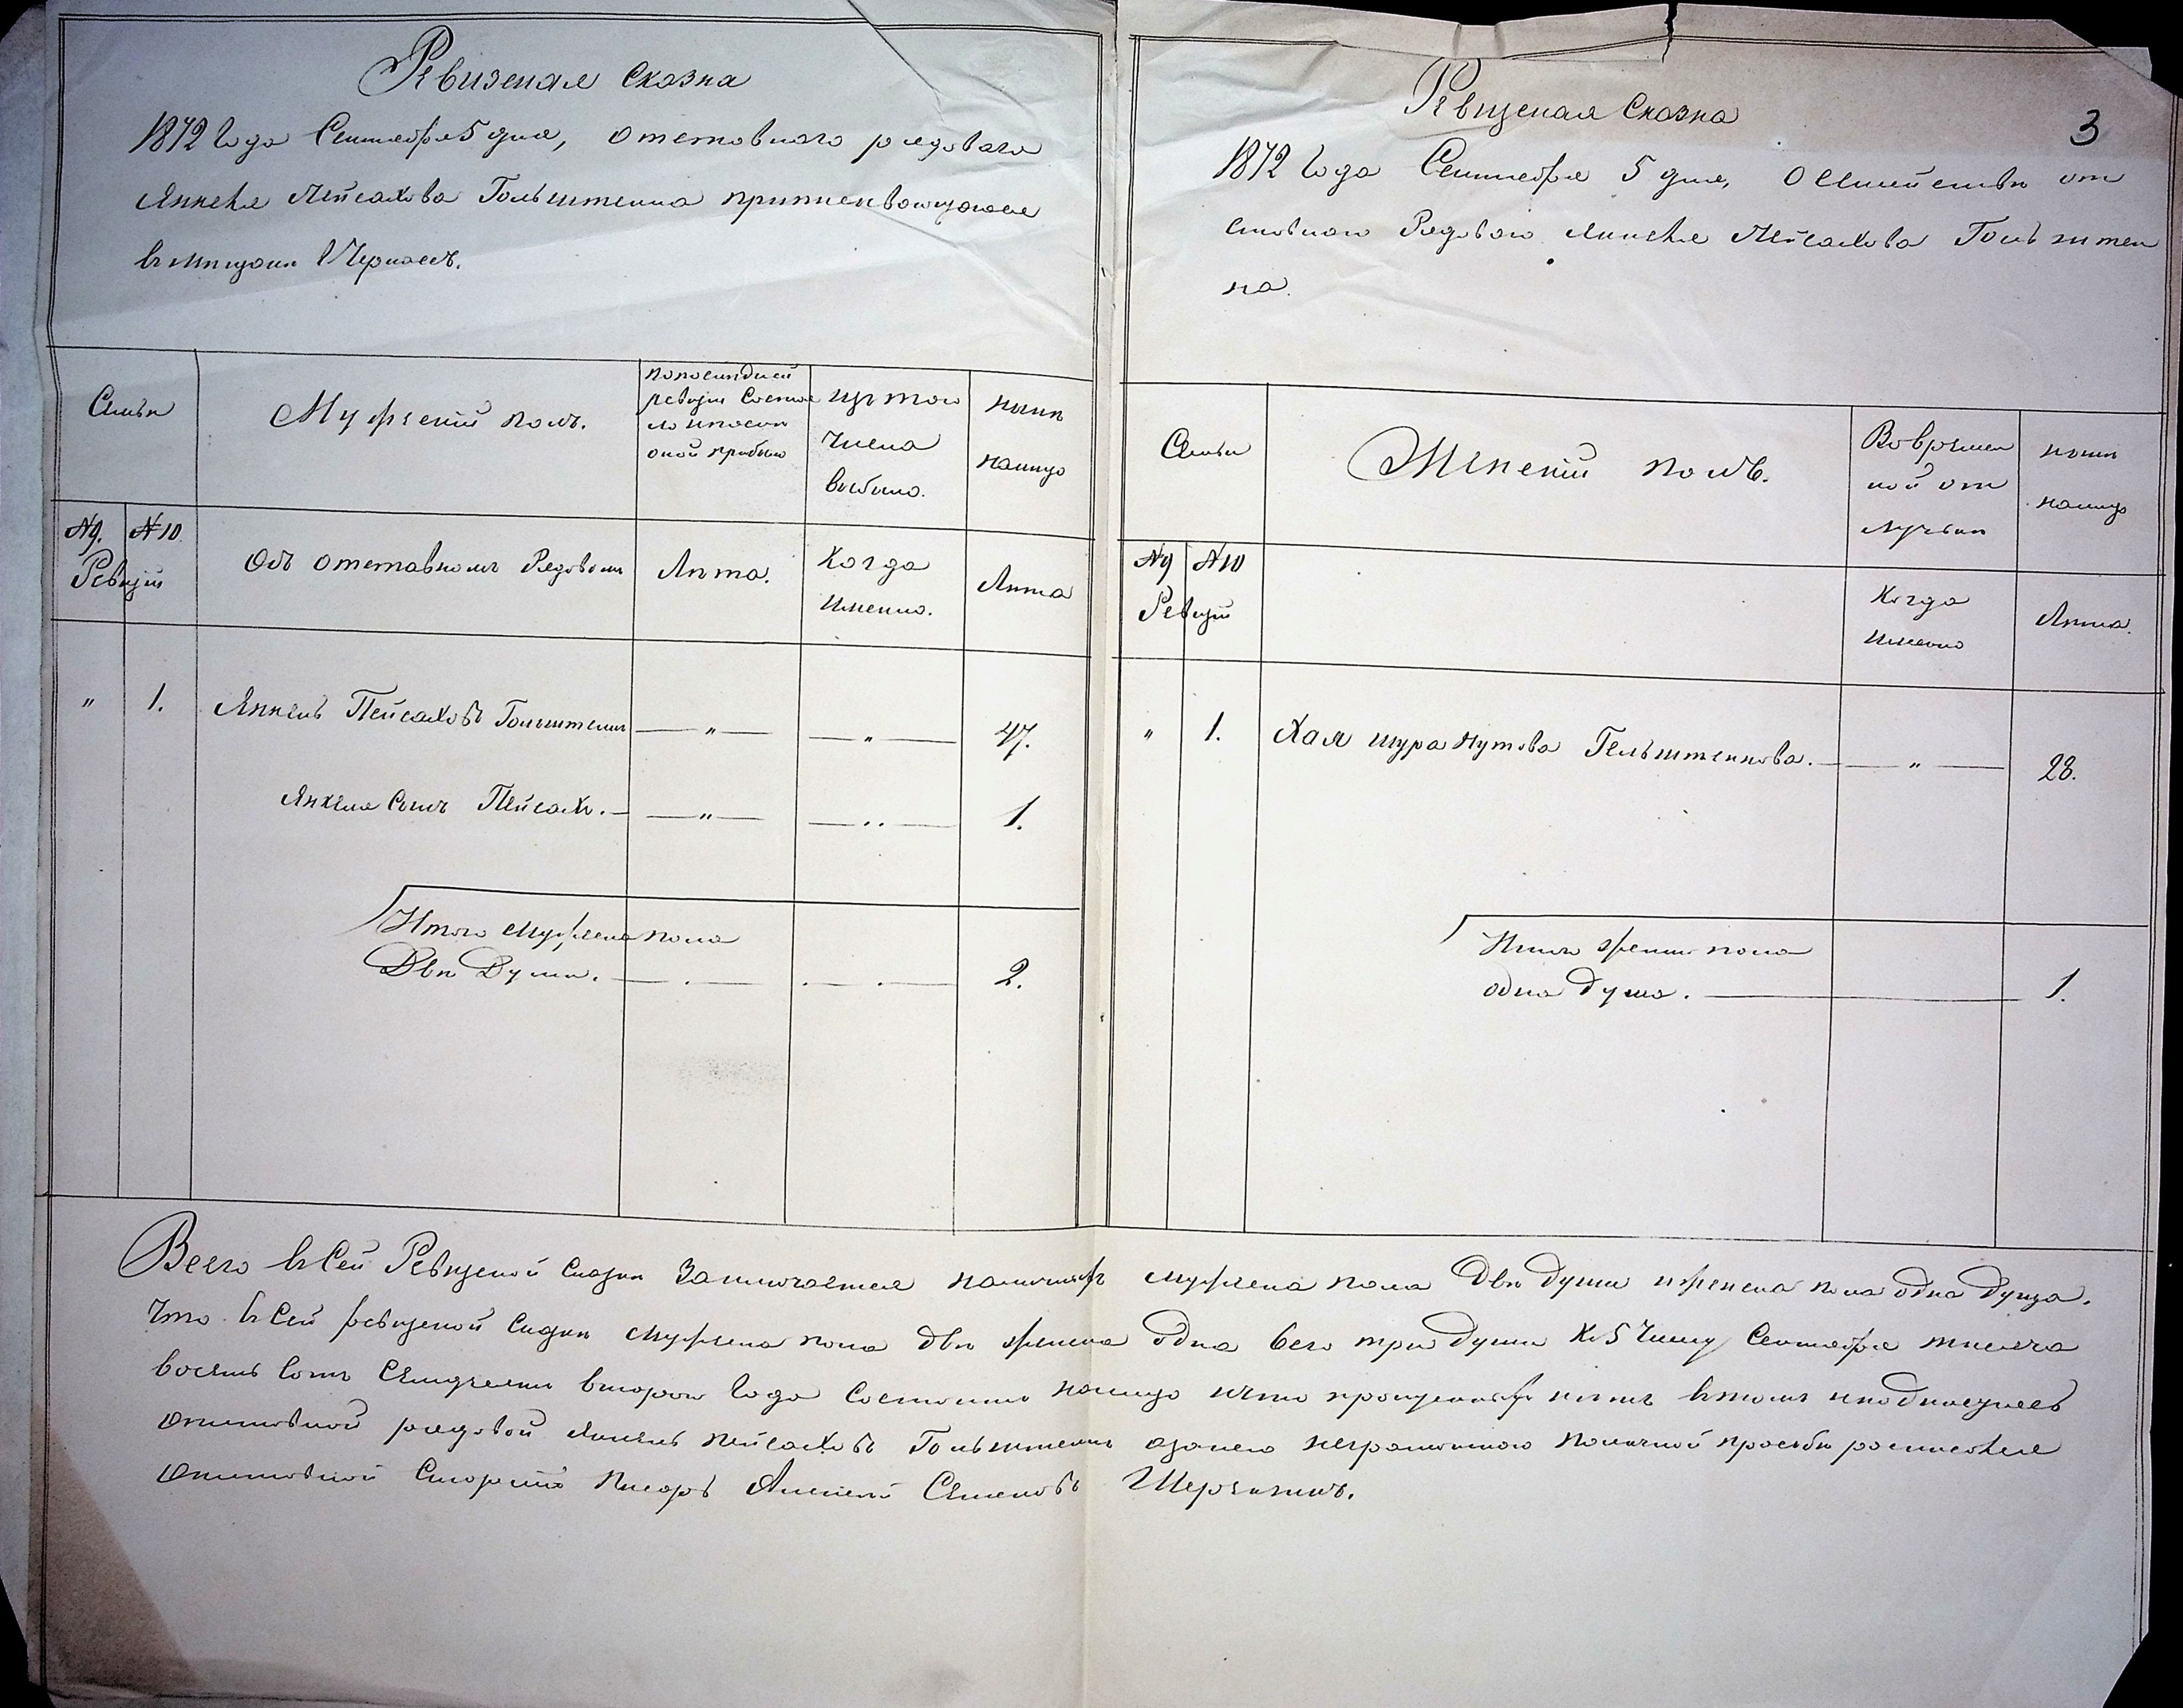 Ревизская Сказка
1872 Года Сентября 5 дня, Отставного рядоваго
Янкеля Пейсахова Гольштеина
в мещане Черкасс.
Семьи
Мужеский полъ.
по последней
ревизии Состоя
ло и после
оной прибыло
изъ того
Числа
выбыло.
ныне
налицо
№ 9. № 10.
Ревизии
Объ отставномъ Рядовомъ
Лета.
Когда
Именно.
Лета
" 1. Янкель Пейсаховъ Гольштеинъ — " — — " — 47.
Янкеля Сынъ Пейсахъ. — — " — — " — 1.
Итого мужеска пола
Две Души. 2.
Ревизская Сказка
3
1872 Года Сентября 5 дня, О Семействе от
ставного Рядового Янкеля Пейсахова Гольштеи
на.
Семьи
Женский полъ.
Во времен
ной от
лучьки
ныне
налицо
№ 9 № 10
Ревизии
Когда
Именно
Лета.
" 1. Хая шура Нутова Гельштеинова. — " — 28.
Итого женска пола
одна душа. 1.
Всего в Сей Ревизской Сказки Заключается наличныхъ мужеска пола Две души и женска пола одна Душа.
Что в Сей ревизской Сказки мужеска пола две женска одна всего три Души К 5 Числу Сентября тысяча
восемь Сотъ Семдесятъ второго Года Состоитъ налицо и что пропущенныхъ нетъ в томъ и подписуюсь
Отставной рядовой Янкель Пейсаховъ Гольштеинъ а за него неграмотного по личной просьбе росписался
Отставной Старший Писарь Алексей Семеновъ